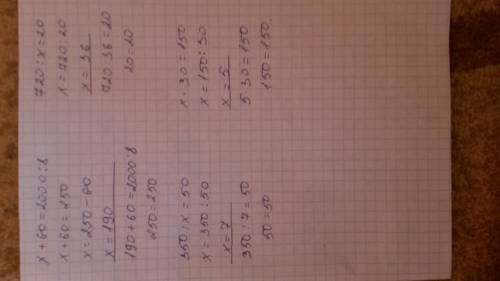 x + 60 = 2000 : 8
x + 60 = 250
x = 250 - 60
x = 190
190 + 60 = 2000 : 8
250 = 250
350 : x = 50
x = 350 : 50
x = 7
350 : 7 = 50
50 = 50
720 : x = 20
x = 720 : 20
x = 36
720 : 36 = 20
20 = 20
x · 30 = 150
x = 150 : 30
x = 5
5 · 30 = 150
150 = 150.